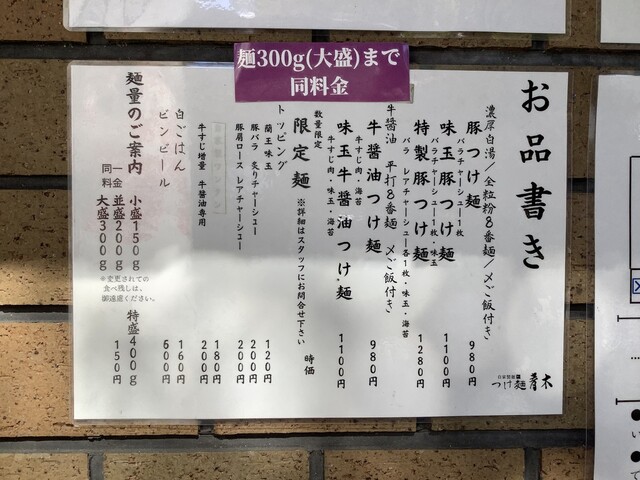 麺300g(大盛)まで
同料金
お品書き
濃厚白湯/全粒粉8番麺/〆ご飯付き
豚つけ麺 980円
バラチャーシュー1枚
味玉豚つけ麺 1100円
バラチャーシュー1枚・味玉
特製豚つけ麺 1280円
バラ・レアチャーシュー各1枚・味玉・海苔
牛醤油 平打8番麺 〆ご飯付き
牛醤油つけ麺 980円
牛すじ肉・海苔
味玉牛醤油つけ麺 1100円
牛すじ肉・味玉・海苔
数量限定
限定麺 ※詳細はスタッフにお問合せ下さい 時価
トッピング
蘭王味玉 120円
豚バラ 炙りチャーシュー 200円
豚肩ロース レアチャーシュー 200円
180円
牛すじ増量 牛醤油専用 200円
白ごはん 160円
ビンビール 600円
麺量のご案内
小盛150g
同一料金 並盛200g
大盛300g
特盛400g 150円
※変更されての
食べ残しは、
御遠慮ください。
自家製麺
つけ麺 青木
い